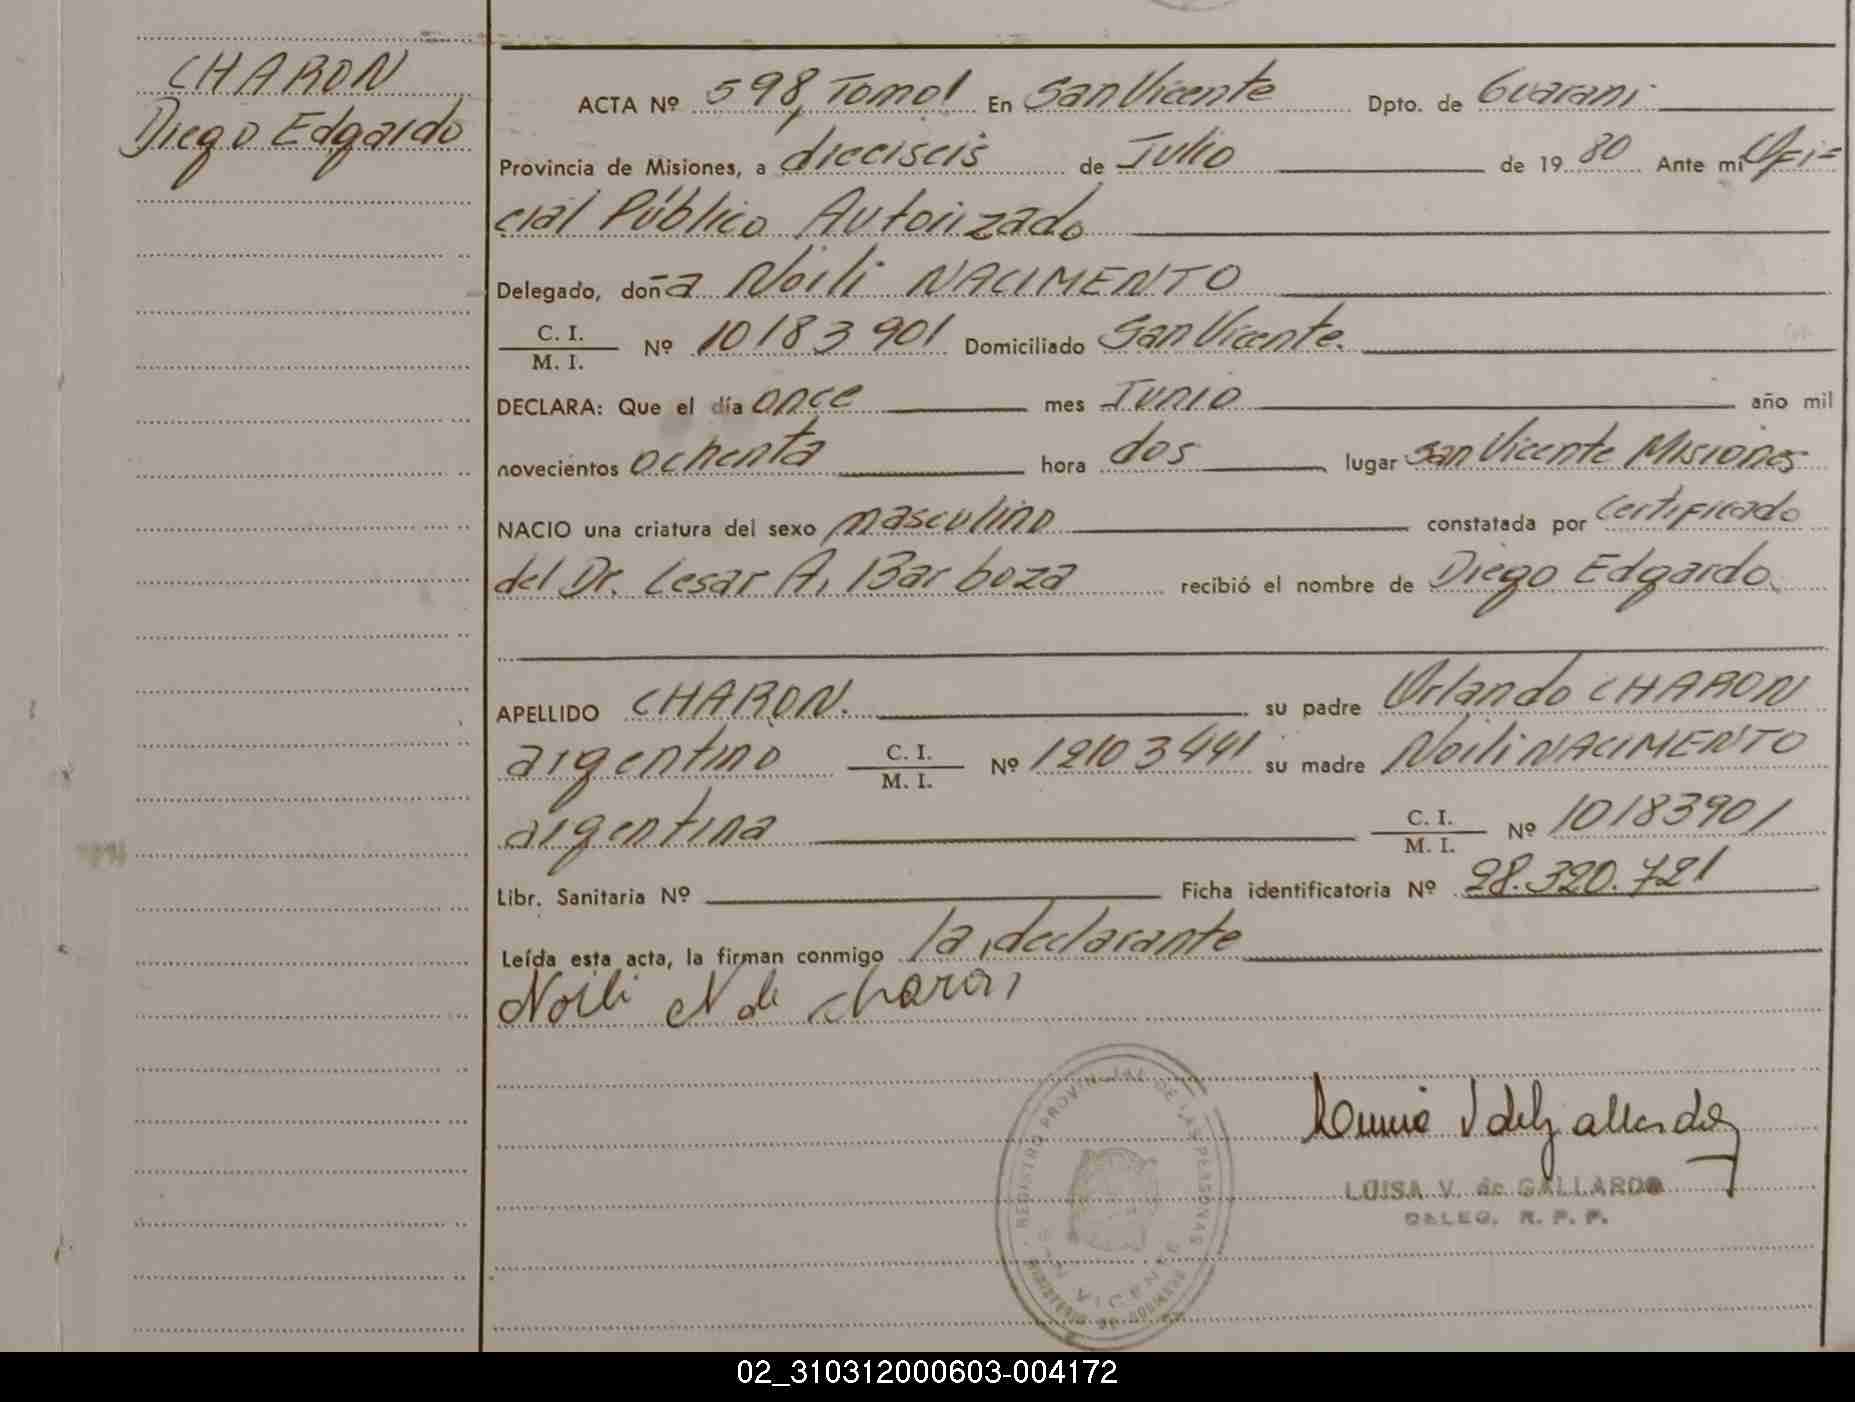 CHARON
Diego Edgardo
ACTA Nº 598, Tomo I En San Vicente Dpto. de Guarani
Provincia de Misiones, a dieciseis de Julio de 1980 Ante mi Ofi=
cial Público Autorizado
Delegado, doña Noili NACIMENTO
C. I. / M. I. Nº 10183901 Domiciliado San Vicente.
DECLARA: Que el día once mes Junio año mil
novecientos ochenta hora dos lugar San Vicente Misiones
NACIO una criatura del sexo masculino constatada por Certificado
del Dr. Cesar A. Barboza recibió el nombre de Diego Edgardo
APELLIDO CHARON. su padre Orlando CHARON
argentino C. I. / M. I. Nº 12103441 su madre Noili NACIMENTO
argentina C. I. / M. I. Nº 10183901
Libr. Sanitaria Nº Ficha identificatoria Nº 28.320.721
Leída esta acta, la firman conmigo la declarante
Noili N de Charon
REGISTRO PROVINCIAL DE LAS PERSONAS
SAN VICENTE
MINISTERIO DE GOBIERNO
LUISA V. de GALLARDO
DELEG. R. P. P.
02_310312000603-004172